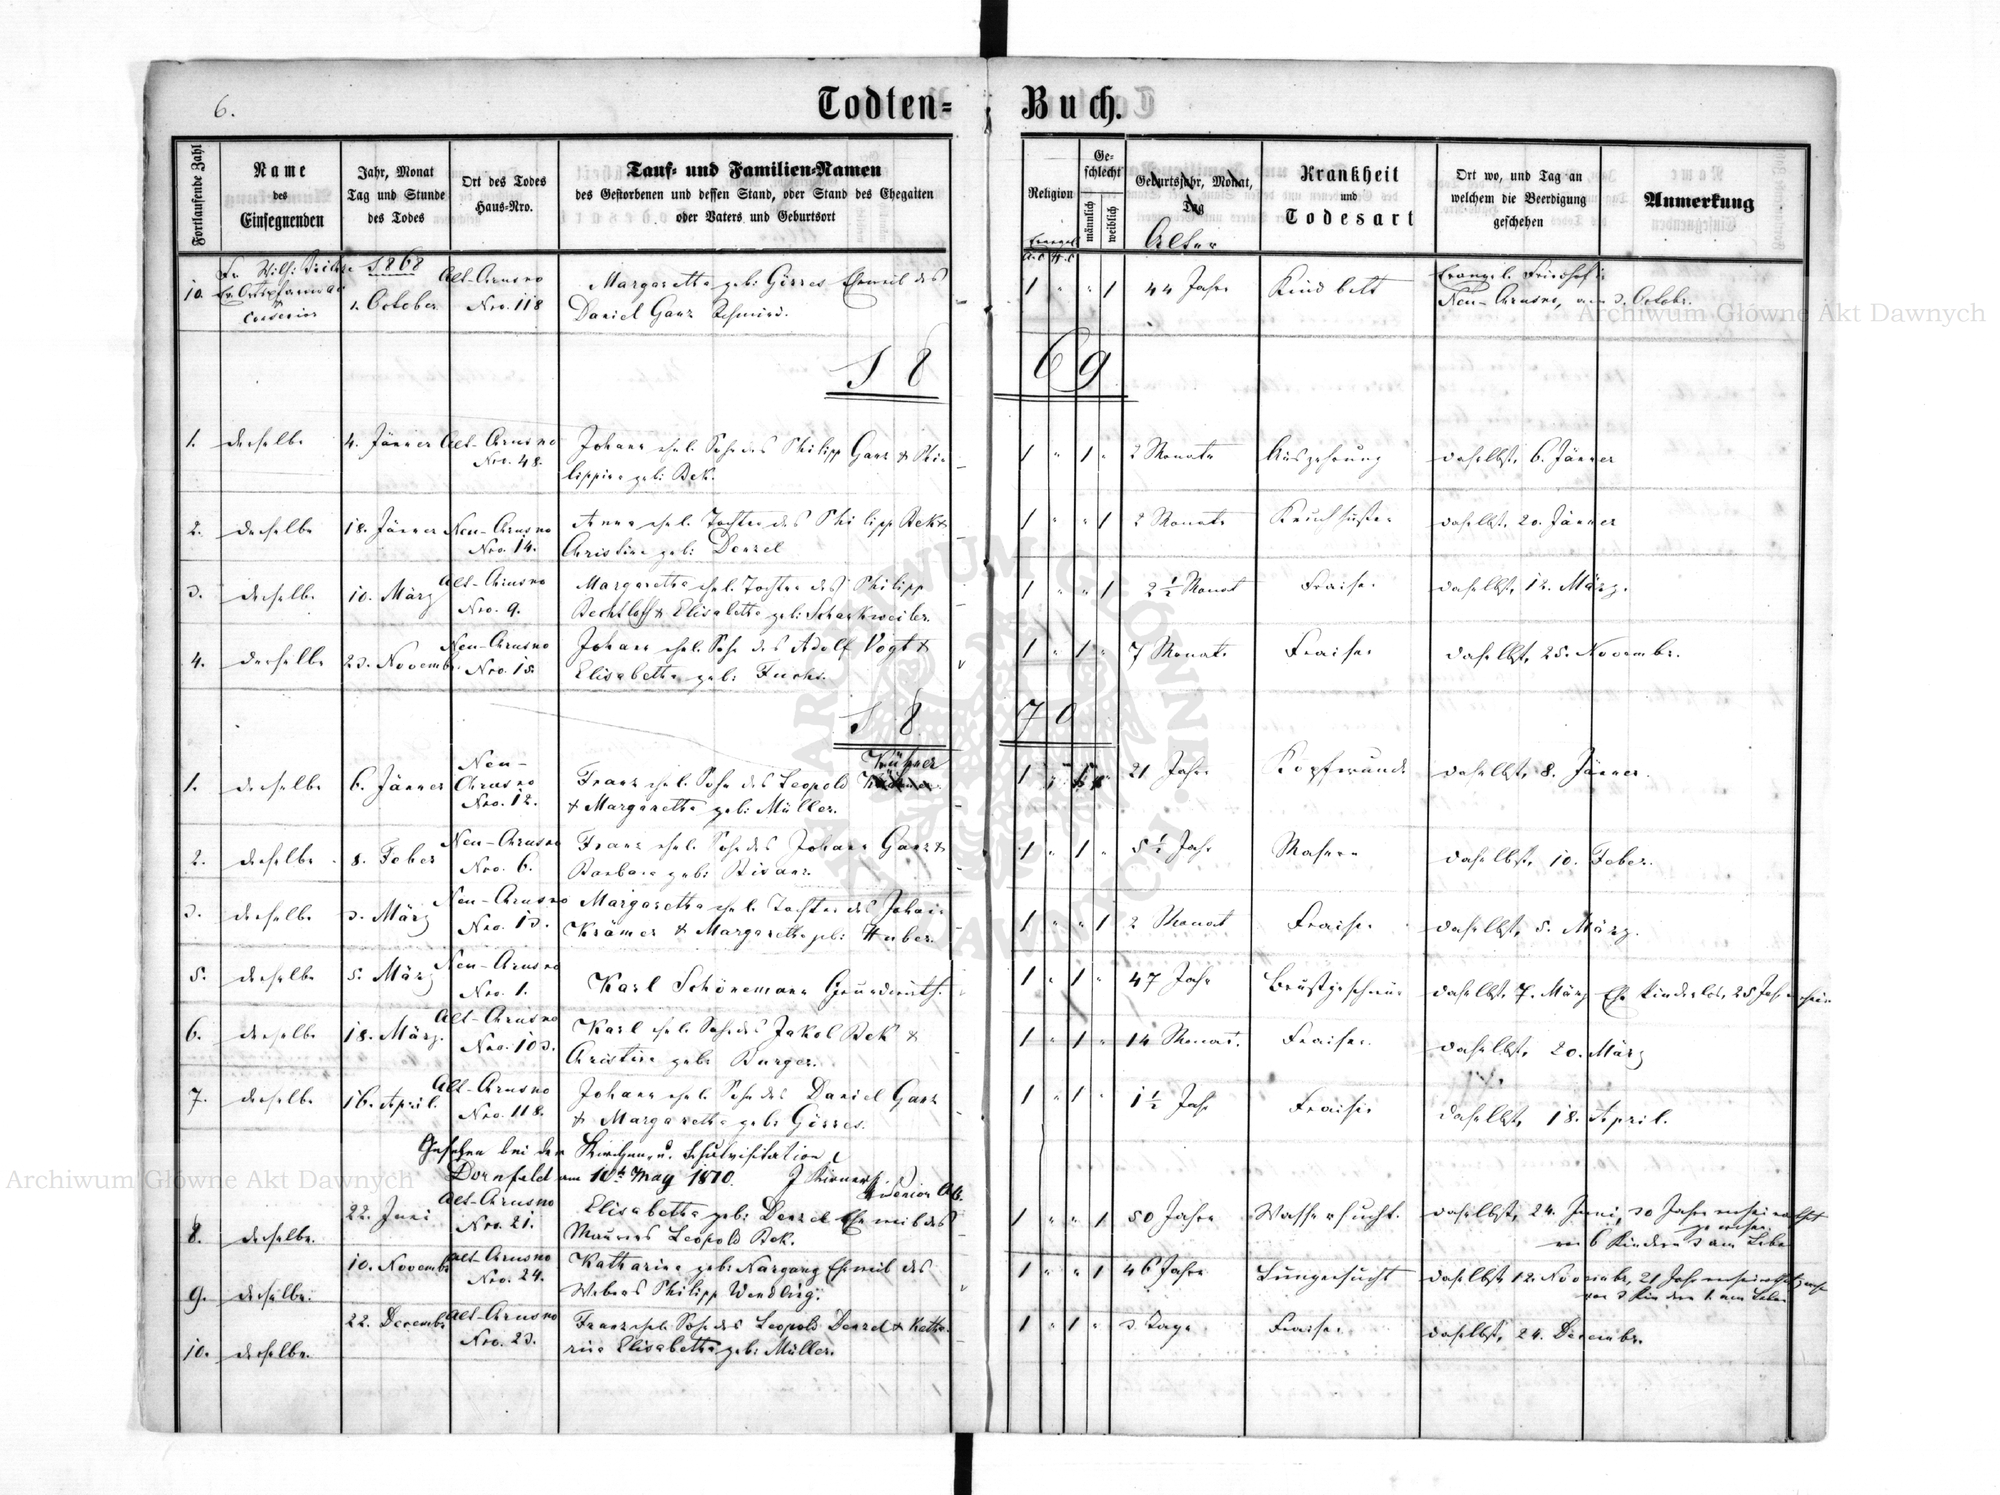 6.
Todten-Buch.
Fortlaufende Zahl
Name
des
Einsegnenden
Jahr, Monat
Tag und Stunde
des Todes
Ort des Todes
Haus-Nro.
Tauf- und Familien-Namen
des Gestorbenen und dessen Stand, oder Stand des Ehegatten
oder Vaters und Geburtsort
Religion
Ge-
schlecht
männlich
weiblich
Geburtsjahr, Monat,
Tag
Alter
Krankheit
und
Todesart
Ort wo, und Tag an
welchem die Beerdigung
geschehen
Anmerkung
10.
1868
1. October
Alt-Chrusno
Nro. 118
Margaretha geb: Görres Eheweib des
Daniel Ganz
1 " " 1
44 Jahre
Kindbett
Evangel. Friedhof in
Neu-Chrusno, am 3. Octobr.
1869
1. derselbe
4. Jänner
Alt-Chrusno
Nro. 48.
Johann ehel. Sohn des Philipp Ganz & Phi-
lippina geb: Bek.
1 " 1 "
2 Monate
Auszehrung
daselbst, 6. Jänner
2. derselbe
18. Jänner
Neu-Chrusno
Nro. 14.
Anna ehel. Tochter des Philipp Bek &
Christine geb: Denzel
1 " " 1
2 Monate
Keuchhusten
daselbst, 20. Jänner
3. derselbe
10. März
Alt-Chrusno
Nro. 9.
Margaretha ehel. Tochter des Philipp
Bechtloff & Elisabetha geb: Scharkweiler.
1 " " 1
2 ½ Monat
Fraisen
daselbst, 12. März.
4. derselbe
23. Novembr.
Neu-Chrusno
Nro. 15.
Johann ehel. Sohn des Adolf Vogt &
Elisabetha geb: Fuchs.
1 " 1 "
7 Monate
Fraisen
daselbst, 25. Novembr.
1870
1. derselbe
6. Jänner
Neu-
Chrusno
Nro. 12.
Franz ehel. Sohn des Leopold
& Margaretha geb: Müller.
21 Jahre
Kopfwunde
daselbst, 8. Jänner.
2. derselbe
8. Feber
Neu-Chrusno
Nro. 6.
Franz ehel. Sohn des Johann Ganz &
Barbara geb:
1 " 1 "
5 ½ Jahr
Masern
daselbst, 10. Feber.
3. derselbe
3. März
Neu-Chrusno
Nro. 13.
Margaretha ehel. Tochter des Johann
Krämer & Margaretha geb: Huber.
1 " " 1
2 Monat
Fraisen
daselbst, 5. März.
5. derselbe
5. März
Neu-Chrusno
Nro. 1.
Karl Schönemann Grundwirth.
1 " 1 "
47 Jahr
daselbst, 7. März
Ehe kinderlos, 25 Jah
6. derselbe
18. März.
Alt-Chrusno
Nro. 103.
Karl ehel. Sohn des Jakob Bek &
Christine geb: Burger.
1 " 1 "
14 Monat.
Fraisen.
daselbst, 20. März
7. derselbe
16. April.
Alt-Chrusno
Nro. 118.
Johann ehel. Sohn des Daniel Ganz
& Margaretha geb: Görres.
1 " 1 "
1 ½ Jahr
Fraisen
daselbst, 18. April.
Gesehen bei der Kirchen u. Schulvisitation
Dornfeld am 10t. May 1870.
8. derselbe.
22. Juni
Alt-Chrusno
Nro. 21.
Elisabetha geb: Denzel Eheweib des
Maurers Leopold Bek.
1 " " 1
50 Jahre
Wassersucht.
daselbst, 24. Juni, 30 Jahre verheirathet
gewesen
von 6 Kindern 3 am Leben
9. derselbe.
10. Novembr
Alt-Chrusno
Nro. 24.
Katharina geb: Nargang Eheweib des
Webers Philipp Wendling.
1 " " 1
46 Jahre
Lungensucht
daselbst 12. Novembr, 21 Jahr verheirathet gewesen
von 3 Kindern 1. am Leben
10. derselbe.
22. Decembr
Alt-Chrusno
Nro. 23.
Franz ehel. Sohn des Leopold Denzel & Katha-
rina Elisabetha geb: Müller.
1 " 1 "
3. Tage
Fraisen
daselbst, 24. Decembr.
Archiwum Główne Akt Dawnych
Archiwum Główne Akt Dawnych
ARCHIWUM GŁÓWNE AKT DAWNYCH